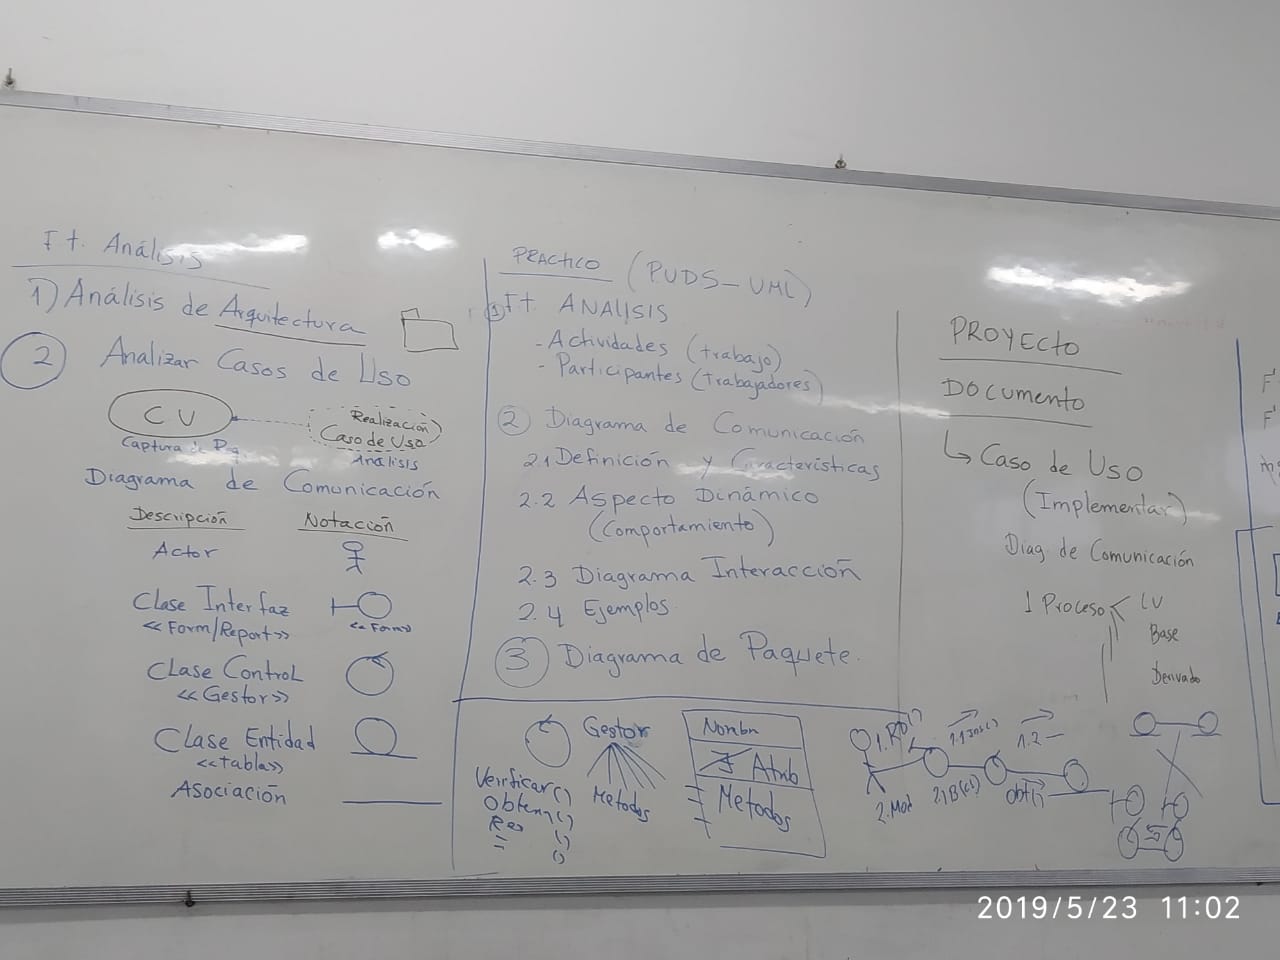 Ft. Análisis
1) Análisis de Arquitectura
2 Analizar Casos de Uso
CU
Realización
Caso de Uso
Captura de Rq.
Análisis
Diagrama de Comunicación
Descripción Notación
Actor
Clase Interfaz
<<Form/Report>>
<<Form>>
Clase Control
<<Gestor>>
Clase Entidad
<<tabla>>
Asociación
PRACTICO (PUDS-UML)
1 Ft. ANALISIS
- Actividades (trabajo)
- Participantes (trabajadores)
2 Diagrama de Comunicación
2.1 Definición y Características
2.2 Aspecto Dinámico
(Comportamiento)
2.3 Diagrama Interacción
2.4 Ejemplos
3 Diagrama de Paquete.
Gestor
Metodos
Verificar()
Obtener()
()
()
Nombr
Atrib
Metodos
PROYECTO
DOCUMENTO
Caso de Uso
(Implementar)
Diag. de Comunicación
1 Proceso
CU
Base
Derivado
1.2
2. Mod
obt()
2019/5/23 11:02